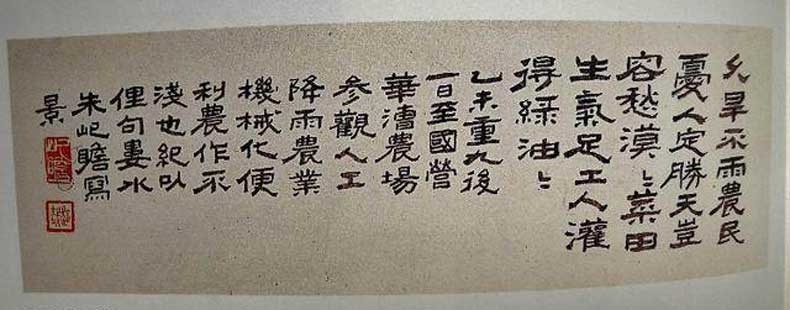 久旱不雨農民
憂人定勝天豈
容愁漠〻菜田
生氣足工人灌
得綠油〻
乙未重九後
一日至國營
華漕農場
參觀人工
降雨農業
機械化便
利農作不
淺也紀以
俚句婁水
朱屺瞻寫
景
屺瞻